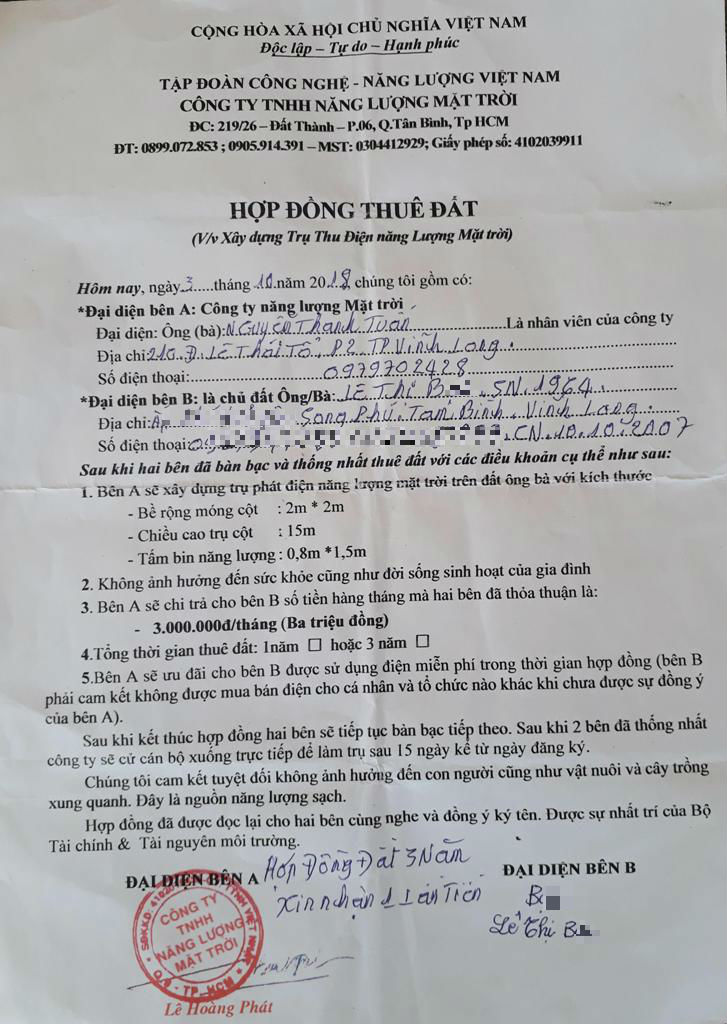 CỘNG HÒA XÃ HỘI CHỦ NGHĨA VIỆT NAM
Độc lập – Tự do – Hạnh phúc
TẬP ĐOÀN CÔNG NGHỆ - NĂNG LƯỢNG VIỆT NAM
CÔNG TY TNHH NĂNG LƯỢNG MẶT TRỜI
ĐC: 219/26 – Đất Thành – P.06, Q.Tân Bình, Tp HCM
ĐT: 0899.072.853 ; 0905.914.391 – MST: 0304412929; Giấy phép số: 4102039911
HỢP ĐỒNG THUÊ ĐẤT
(V/v Xây dựng Trụ Thu Điện năng Lượng Mặt trời)
Hôm nay, ngày 3 tháng 10 năm 2018 chúng tôi gồm có:
*Đại diện bên A: Công ty năng lượng Mặt trời
Đại diện: Ông (bà): Nguyễn Thanh Tuấn Là nhân viên của công ty
Địa chỉ: 210.Đ. LÊ Thái Tổ, P2 TP Vĩnh Long.
Số điện thoại: 0979702428
*Đại diện bên B: là chủ đất Ông/Bà: LÊ Thị SN.1964.
Địa chỉ: Ấp Song Phú. Tam Bình. Vĩnh Long.
Số điện thoại: CN.10.10.2007
Sau khi hai bên đã bàn bạc và thống nhất thuê đất với các điều khoản cụ thể như sau:
1. Bên A sẽ xây dựng trụ phát điện năng lượng mặt trời trên đất ông bà với kích thước
- Bề rộng móng cột : 2m * 2m
- Chiều cao trụ cột : 15m
- Tấm bin năng lượng : 0,8m *1,5m
2. Không ảnh hưởng đến sức khỏe cũng như đời sống sinh hoạt của gia đình
3. Bên A sẽ chi trả cho bên B số tiền hàng tháng mà hai bên đã thỏa thuận là:
- 3.000.000đ/tháng (Ba triệu đồng)
4.Tổng thời gian thuê đất: 1năm ☐ hoặc 3 năm ☐
5.Bên A sẽ ưu đãi cho bên B được sử dụng điện miễn phí trong thời gian hợp đồng (bên B
phải cam kết không được mua bán điện cho cá nhân và tổ chức nào khác khi chưa được sự đồng ý
của bên A).
Sau khi kết thúc hợp đồng hai bên sẽ tiếp tục bàn bạc tiếp theo. Sau khi 2 bên đã thống nhất
công ty sẽ cử cán bộ xuống trực tiếp để làm trụ sau 15 ngày kể từ ngày đăng ký.
Chúng tôi cam kết tuyệt đối không ảnh hưởng đến con người cũng như vật nuôi và cây trồng
xung quanh. Đây là nguồn năng lượng sạch.
Hợp đồng đã được đọc lại cho hai bên cùng nghe và đồng ý ký tên. Được sự nhất trí của Bộ
Tài chính & Tài nguyên môi trường.
ĐẠI DIỆN BÊN A
Hợp Đồng Đất 3 Năm
Xin nhận 1 Lần Tiền
ĐẠI DIỆN BÊN B
Lê Thị
CÔNG TY
TNHH
NĂNG LƯỢNG
MẶT TRỜI
TP. HCM
Lê Hoàng Phát